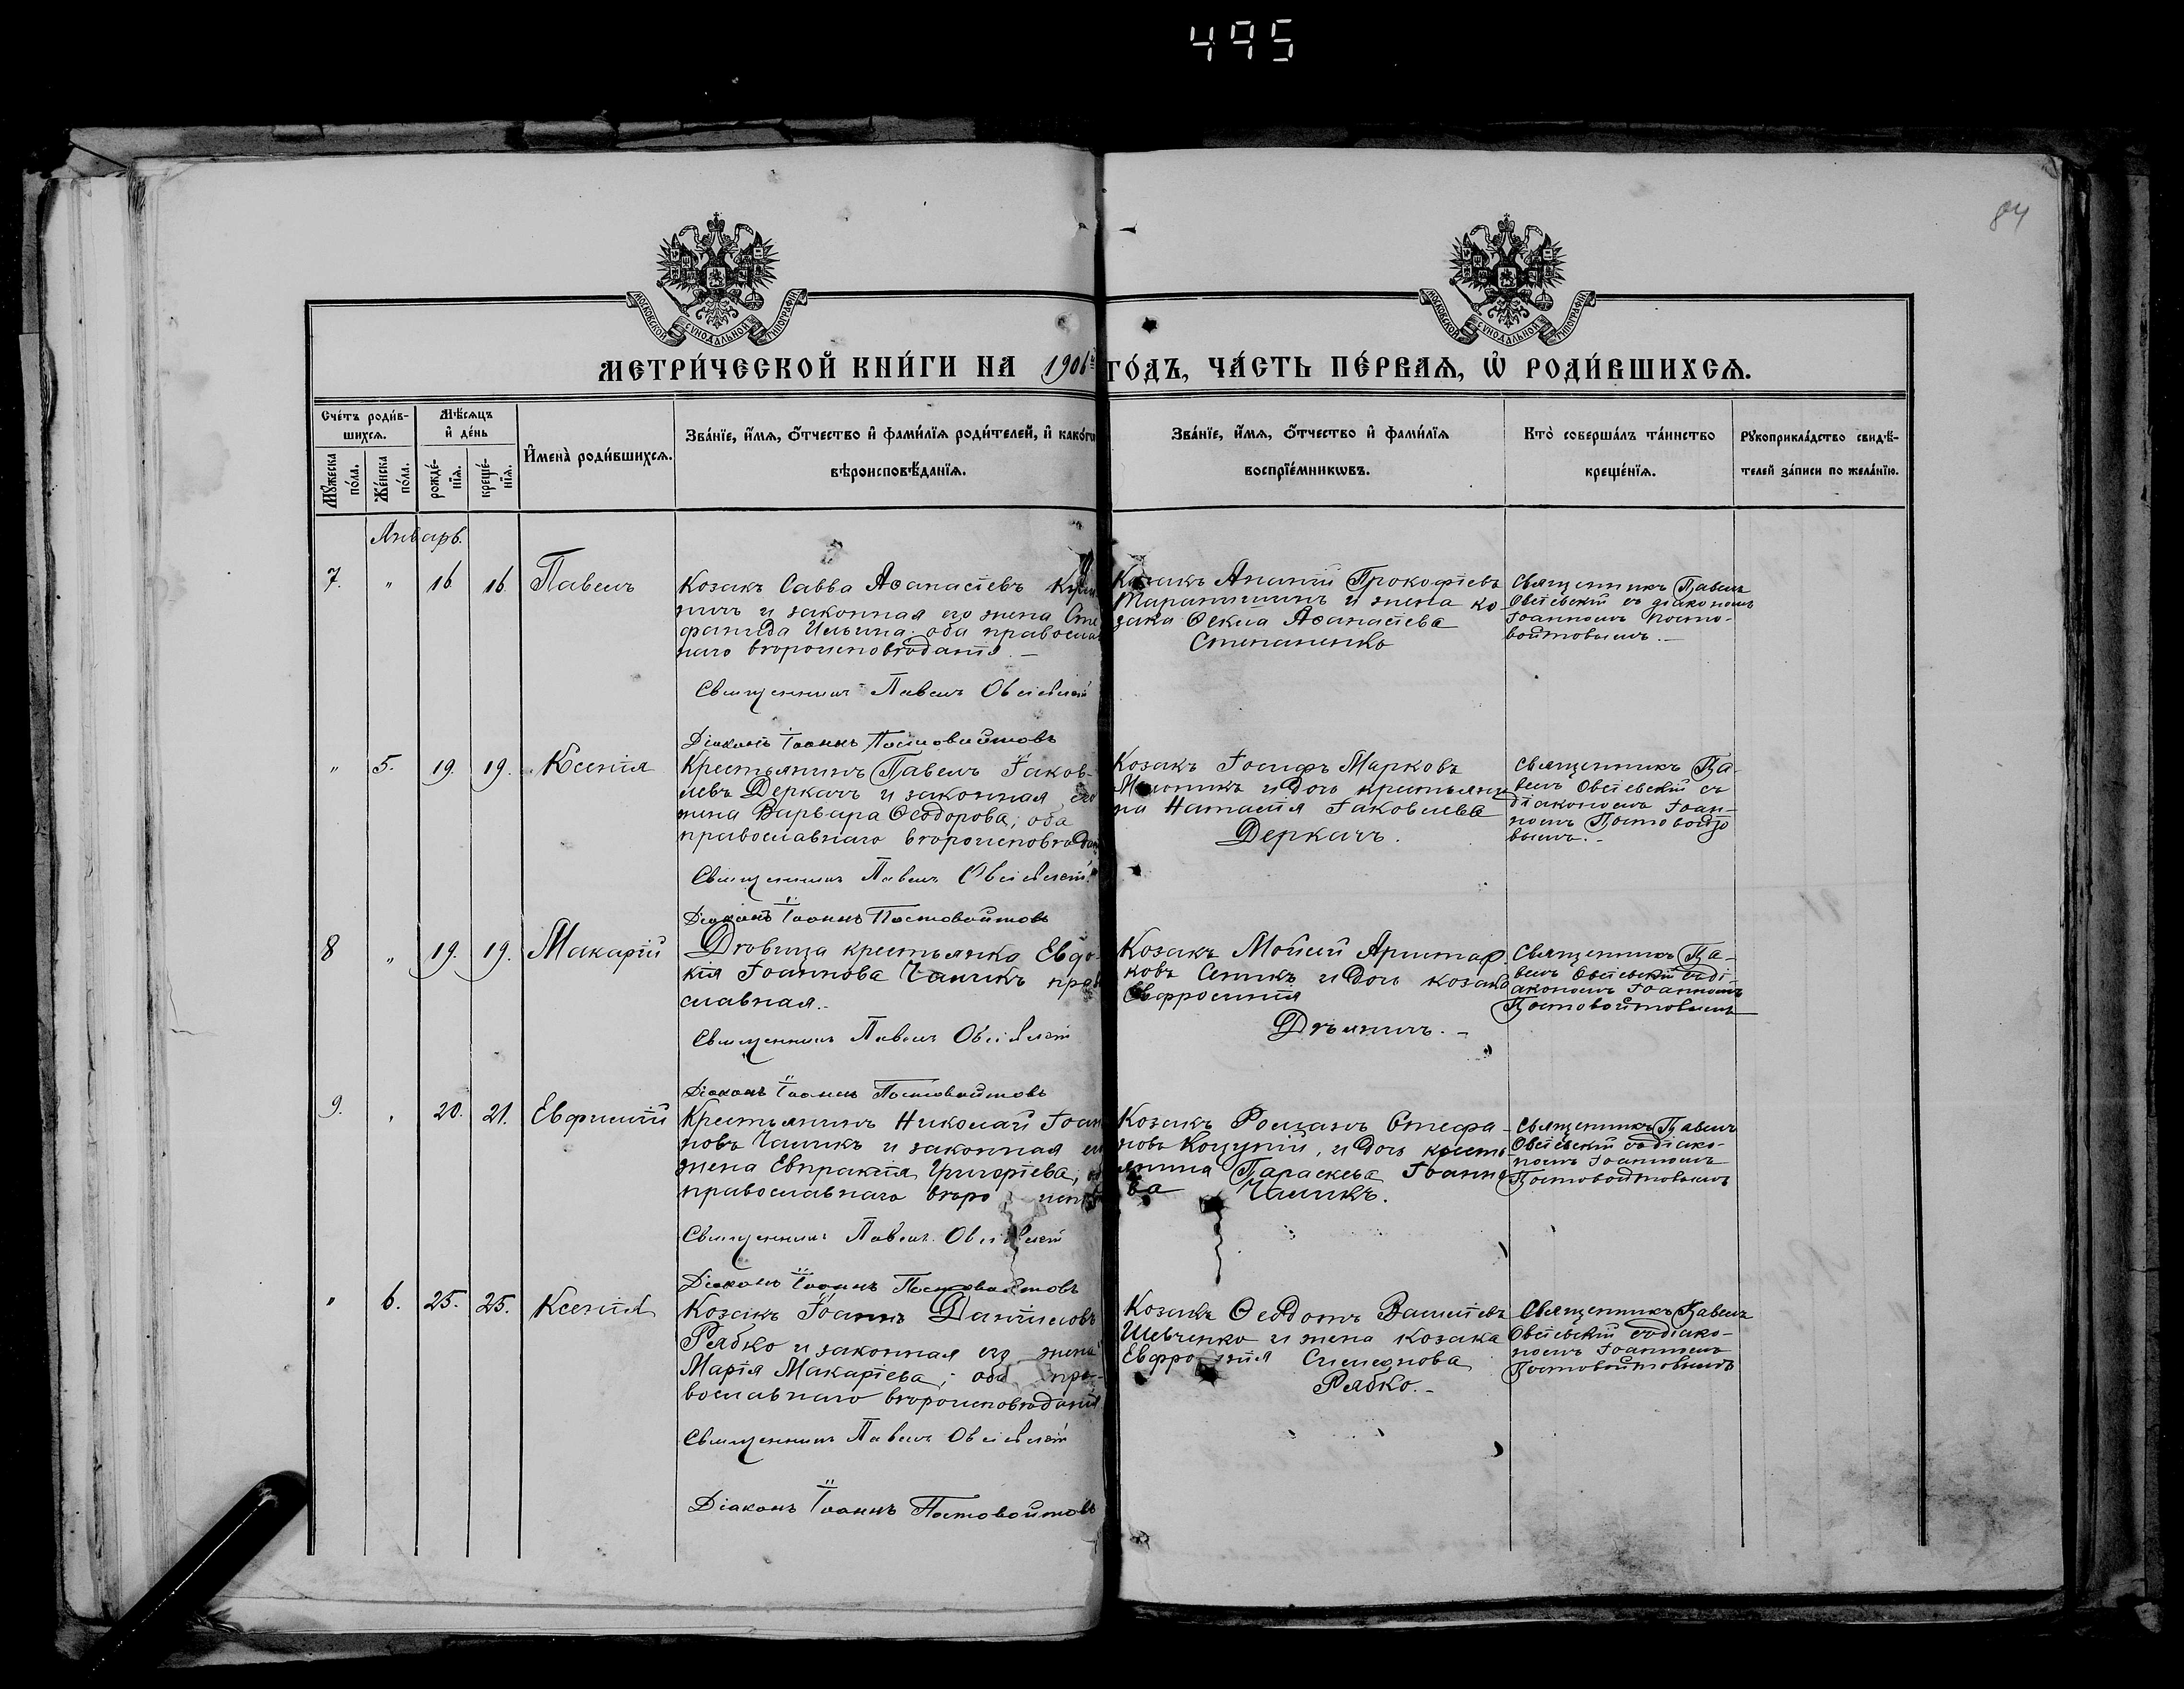 495
84
МОСКОВСКОЙ СѴНОДАЛЬНОЙ ТИПОГРАФІИ
МОСКОВСКОЙ СѴНОДАЛЬНОЙ ТИПОГРАФІИ
МЕТРИ́ЧЕСКОЙ КНИ́ГИ НА 1906й ГО́ДЪ, ЧА́СТЬ ПЕ́РВАѦ, Ѡ҆ РОДИ́ВШИХСѦ.
Сче́тъ роди́в-
шихсѧ.
Мѣ́сѧцъ
и҆ де́нь
Мꙋ́жеска по́ла.
Же́нска по́ла.
рожде́-
нїѧ.
креще́-
нїѧ.
И҆мена̀ роди́вшихсѧ.
Зва́нїе, и҆́мѧ, ѻ҆́тчество и҆ фами́лїѧ роди́телей, и҆ како́гѡ
вѣроисповѣ́данїѧ.
Зва́нїе, и҆́мѧ, ѻ҆́тчество и҆ фами́лїѧ
воспрїе́мникѡвъ.
Кто̀ соверша́лъ та́инство
креще́нїѧ.
Рꙋкоприкла́дство свидѣ́-
телей за́писи по жела́нїю.
Январь.
7. " 16 16. Павелъ
Козакъ Савва Аѳанасіевъ
и законная его жена Сте
фанида Ильина; оба правосла
наго вѣроисповѣданія. —
Священникъ Павелъ Овсіевскій
Діаконъ Іоаннъ Постовойтовъ
Козакъ Ананій Прокофіевъ
и жена ко-
зака Ѳекла Аѳанасіева
Степаненко
Священникъ Павелъ
Овсіевскій съ діакономъ
Іоанномъ Посто-
войтовымъ. —
" 5. 19. 19. Ксенія
Крестьянинъ Павелъ Іаков-
левъ Деркачъ и законная его
жена Варвара Ѳеодорова; оба
православнаго вѣроисповѣдан
Священникъ Павелъ Овсіевскій
Діаконъ Іоаннъ Постовойтовъ
Козакъ Іосифъ Марковъ
и дочь крестьяни
на Наталія Іаковлева
Деркачъ.
Священникъ Па-
велъ Овсіевскій съ
діакономъ Іоан-
номъ Постовойто
вымъ. -
8 " 19. 19. Макарій
Дѣвица крестьянка Евдо-
кія Іоаннова Чаликъ прав
славная. -
Священникъ Павелъ Овсіевскій
Діаконъ Іоаннъ Постовойтовъ
Козакъ Моисей Аристар
ховъ и дочь козака
Евфросинія
Священникъ Па-
велъ Овсіевскій съ ді-
акономъ Іоанномъ
Постовойтовымъ
9. " 20. 21. Евфимій
Крестьянинъ Николай Іоан
новъ Чаликъ и законная ег
жена Евпраксія Григоріева; об
православнаго вѣро испов
Священникъ Павелъ Овсіевскій
Діаконъ Іоаннъ Постовойтовъ
Козакъ Романъ Стефа-
новъ Коцупій, и дочь кресть
янина Параскева Іоанно
ва Чаликъ.
Священникъ Павелъ
Овсіевскій съ діако-
номъ Іоанномъ
Постовойтовымъ
" 6. 25. 25. Ксенія
Козакъ Іоаннъ Даніиловъ
Рябко и законная его жена
Марія Макаріева; оба пра-
вославнаго вѣроисповѣданія
Священникъ Павелъ Овсіевскій
Діаконъ Іоаннъ Постовойтовъ
Козакъ Ѳеодотъ Василіевъ
Шевченко и жена козака
Евфросинія Симеонова
Рябко. -
Священникъ Павелъ
Овсіевскій съ діако-
номъ Іоанномъ
Постовойтовымъ